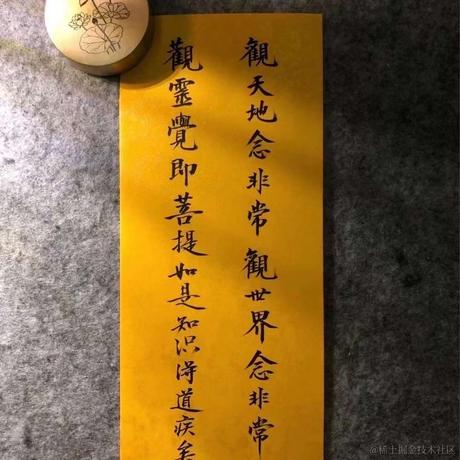 觀天地念非常觀世界念非常
觀靈覺即菩提如是知识得道疾矣
@稀土掘金技术社区